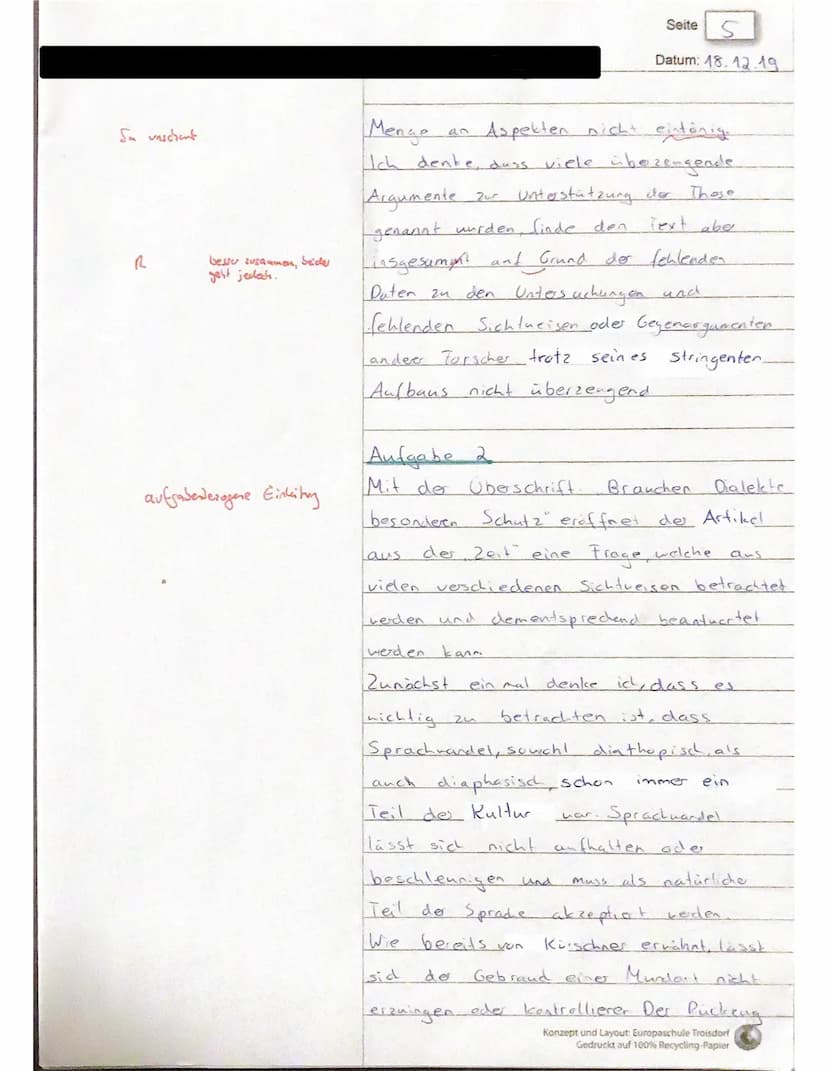 Seite 5
Datum: 18.12.19
Sn unscharf
Menge an Aspekten nicht eintönig.
Ich denke, dass viele überzeugende
Argumente zur Unterstützung der These
genannt wurden, finde den Text aber
R
besser zusammen, beides
geht jedoch.
insgesamt auf Grund der fehlenden
Daten zu den Untersuchungen und
fehlenden Sichtweisen oder Gegenargumenten
anderer Forscher trotz seines stringenten
Aufbaus nicht überzeugend
Aufgabe 2
aufgabenbezogene Einleitung
Mit der Überschrift Brauchen Dialekte
besonderen Schutz" eröffnet der Artikel
aus der "Zeit" eine Frage, welche aus
vielen verschiedenen Sichtweisen betrachtet
werden und dementsprechend beantwortet
werden kann
Zunächst ein mal denke ich, dass es
wichtig zu betrachten ist, dass
Sprachwandel, sowohl diathopisch, als
auch diaphasisch, schon immer ein
Teil der Kultur war. Sprachwandel
lässt sich nicht aufhalten oder
beschleunigen und muss als natürliche
Teil der Sprache akzeptiert werden.
Wie bereits von Kürschner erwähnt, lässt
sich der Gebrauch einer Mundart nicht
erzwingen oder kontrollieren Der
Konzept und Layout: Europaschule Troisdorf
Gedruckt auf 100% Recycling-Papier